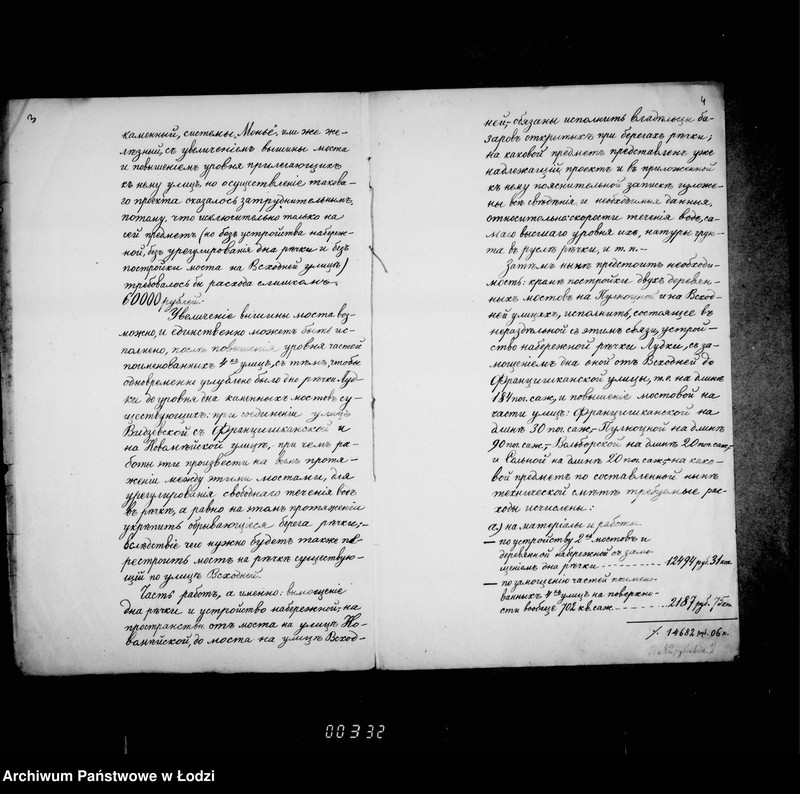 3
каменный, системы „Монье", или же же-
лѣзный, съ увеличеніемъ вышины моста
и повышеніемъ уровня прилегающихъ
къ нему улицъ, но осуществленіе таковa-
го проекта оказалось затруднительнымъ,
потому, что исключительно только на
сей предметъ (но безъ устройства набереж-
ной, безъ урегулированія дна рѣчки и безъ
постройки моста на Всходней улицѣ)
требовалось бы расхода слишкомъ
60000 рублей.
Увеличеніе вышины моста воз-
можно, и единственно можетъ быть ис-
полнено, послѣ повышенія уровня частей
поименованныхъ 4хъ улицъ, съ тѣмъ, чтобы
одновременно углублено было дно рѣчки Луд-
ки до уровня дна каменныхъ мостовъ су-
ществующихъ: при соединеніи улицъ
Видзевской съ Францишканской и
на Новамѣйской улицѣ, при чемъ ра-
боты эти произвести на всемъ протя-
женіи между этими мостами, для
урегулированія свободнаго теченія водъ
въ рѣчкѣ, а равно на этомъ протяженіи
укрѣпить обрывающіеся берега рѣчки;-
вслѣдствіе чего нужно будетъ также пе-
рестроить мостъ на рѣчкѣ существую-
щій по улицѣ Всходней.
Часть работъ, а именно: вымощеніе
дна рѣчки и устройство набережной, на
пространствѣ отъ моста на улицѣ Но-
вамѣйской, до моста на улицѣ Всход-
4
ней,- обязаны исполнить владѣльцы ба-
заровъ открытыхъ при берегахъ рѣчки;
на каковой предметъ представленъ уже
надлежащій проектъ и въ приложенной
къ нему пояснительной запискѣ изложе-
ны всѣ свѣдѣнія и необходимыя данныя,
относительно скорости теченія воды, са-
маго высшаго уровня ихъ, натуры грун-
та въ руслѣ рѣчки, и т. п. -
Затѣмъ нынѣ предстоитъ необходи-
мость: кромѣ постройки двухъ деревян-
ныхъ мостовъ на Пулноцной и на Всход-
ней улицахъ, исполнить, состоящее въ
нераздѣльной съ этимъ связи, устрой-
ство набережной рѣчки Лудки, съ за-
мощеніемъ дна оной отъ Всходней до
Францишканской улицы, т.е. на длинѣ
184 пог. саж. и повышеніе мостовой на
части улицъ: Францишканской на
длинѣ 30 пог. саж,- Пулноцной на длинѣ
90 пог. саж,- Вольборской на длинѣ 20 пог. саж,-
и Сольной на длинѣ 20 пог. саж,- на како-
вой предметъ по составленной нынѣ
технической смѣтѣ требуемые рас-
ходы исчислены:
а) на матеріалы и работы
— по устройству 2хъ мостовъ и
деревянной набережной съ замо-
щеніемъ дна рѣчки - - - 12494 руб. 31 коп.
— по замощенію частей поимено-
ванныхъ 4хъ улицъ на поверхно-
сти вообще 702 кв. саж. - - - 2187 руб. 75 коп.
14682 руб. 06 к.
00332
Archiwum Państwowe w Łodzi